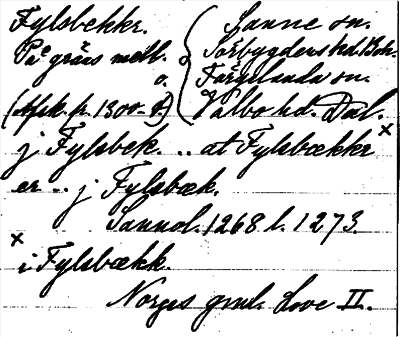 Fylsbekkr. Sanne sn.
På gräns mell. Sörbygdens hd. Boh.
o. Färgelanda sn.
(Afsk. fr. 1300-t.) Valbo hd. Dal.
j Fylsbek. .. at Fylsbækkr x
er .. j Fylsbæk.
Sannol. 1268 l. 1273.
x i Fylsbækk.
Norges gml. Love II.